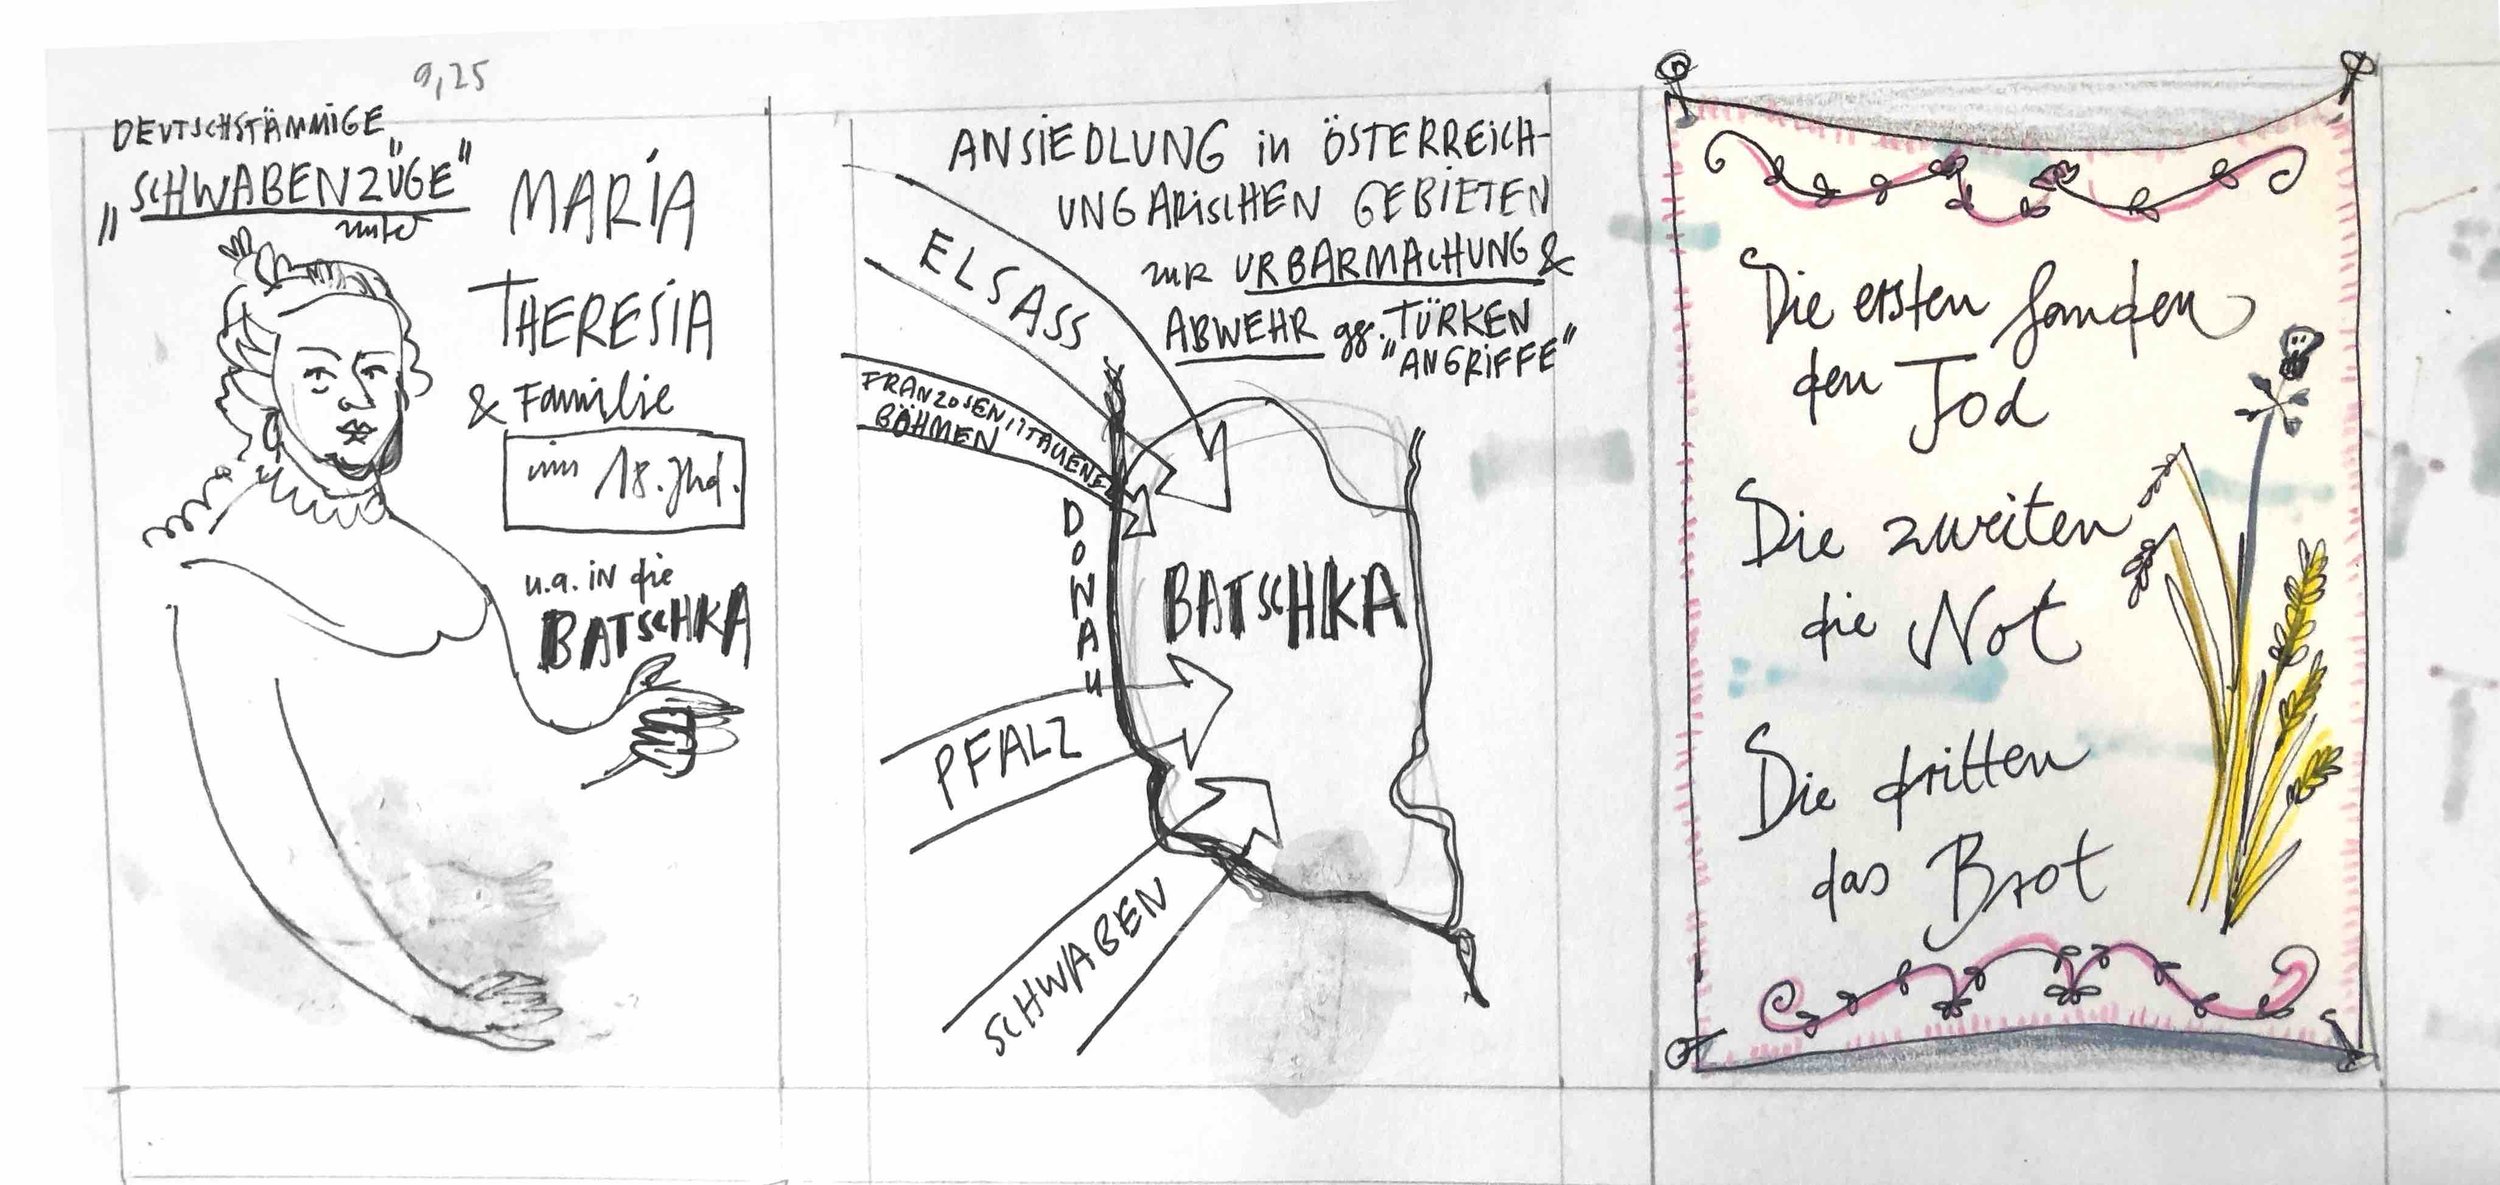 9,25
DEUTSCHSTÄMMIGE
„SCHWABENZÜGE"
unter
MARIA
THERESIA
& Familie
im 18. Jhd.
u.a. in die
BATSCHKA
ANSIEDLUNG in ÖSTERREICH-
UNGARISCHEN GEBIETEN
zur URBARMACHUNG &
ABWEHR gg. TÜRKEN
"ANGRIFFE"
ELSASS
FRANZOSEN, ITALIENER
BÖHMEN
DONAU
BATSCHKA
PFALZ
SCHWABEN
Die ersten fanden
den Tod
Die zweiten
die Not
Die dritten
das Brot